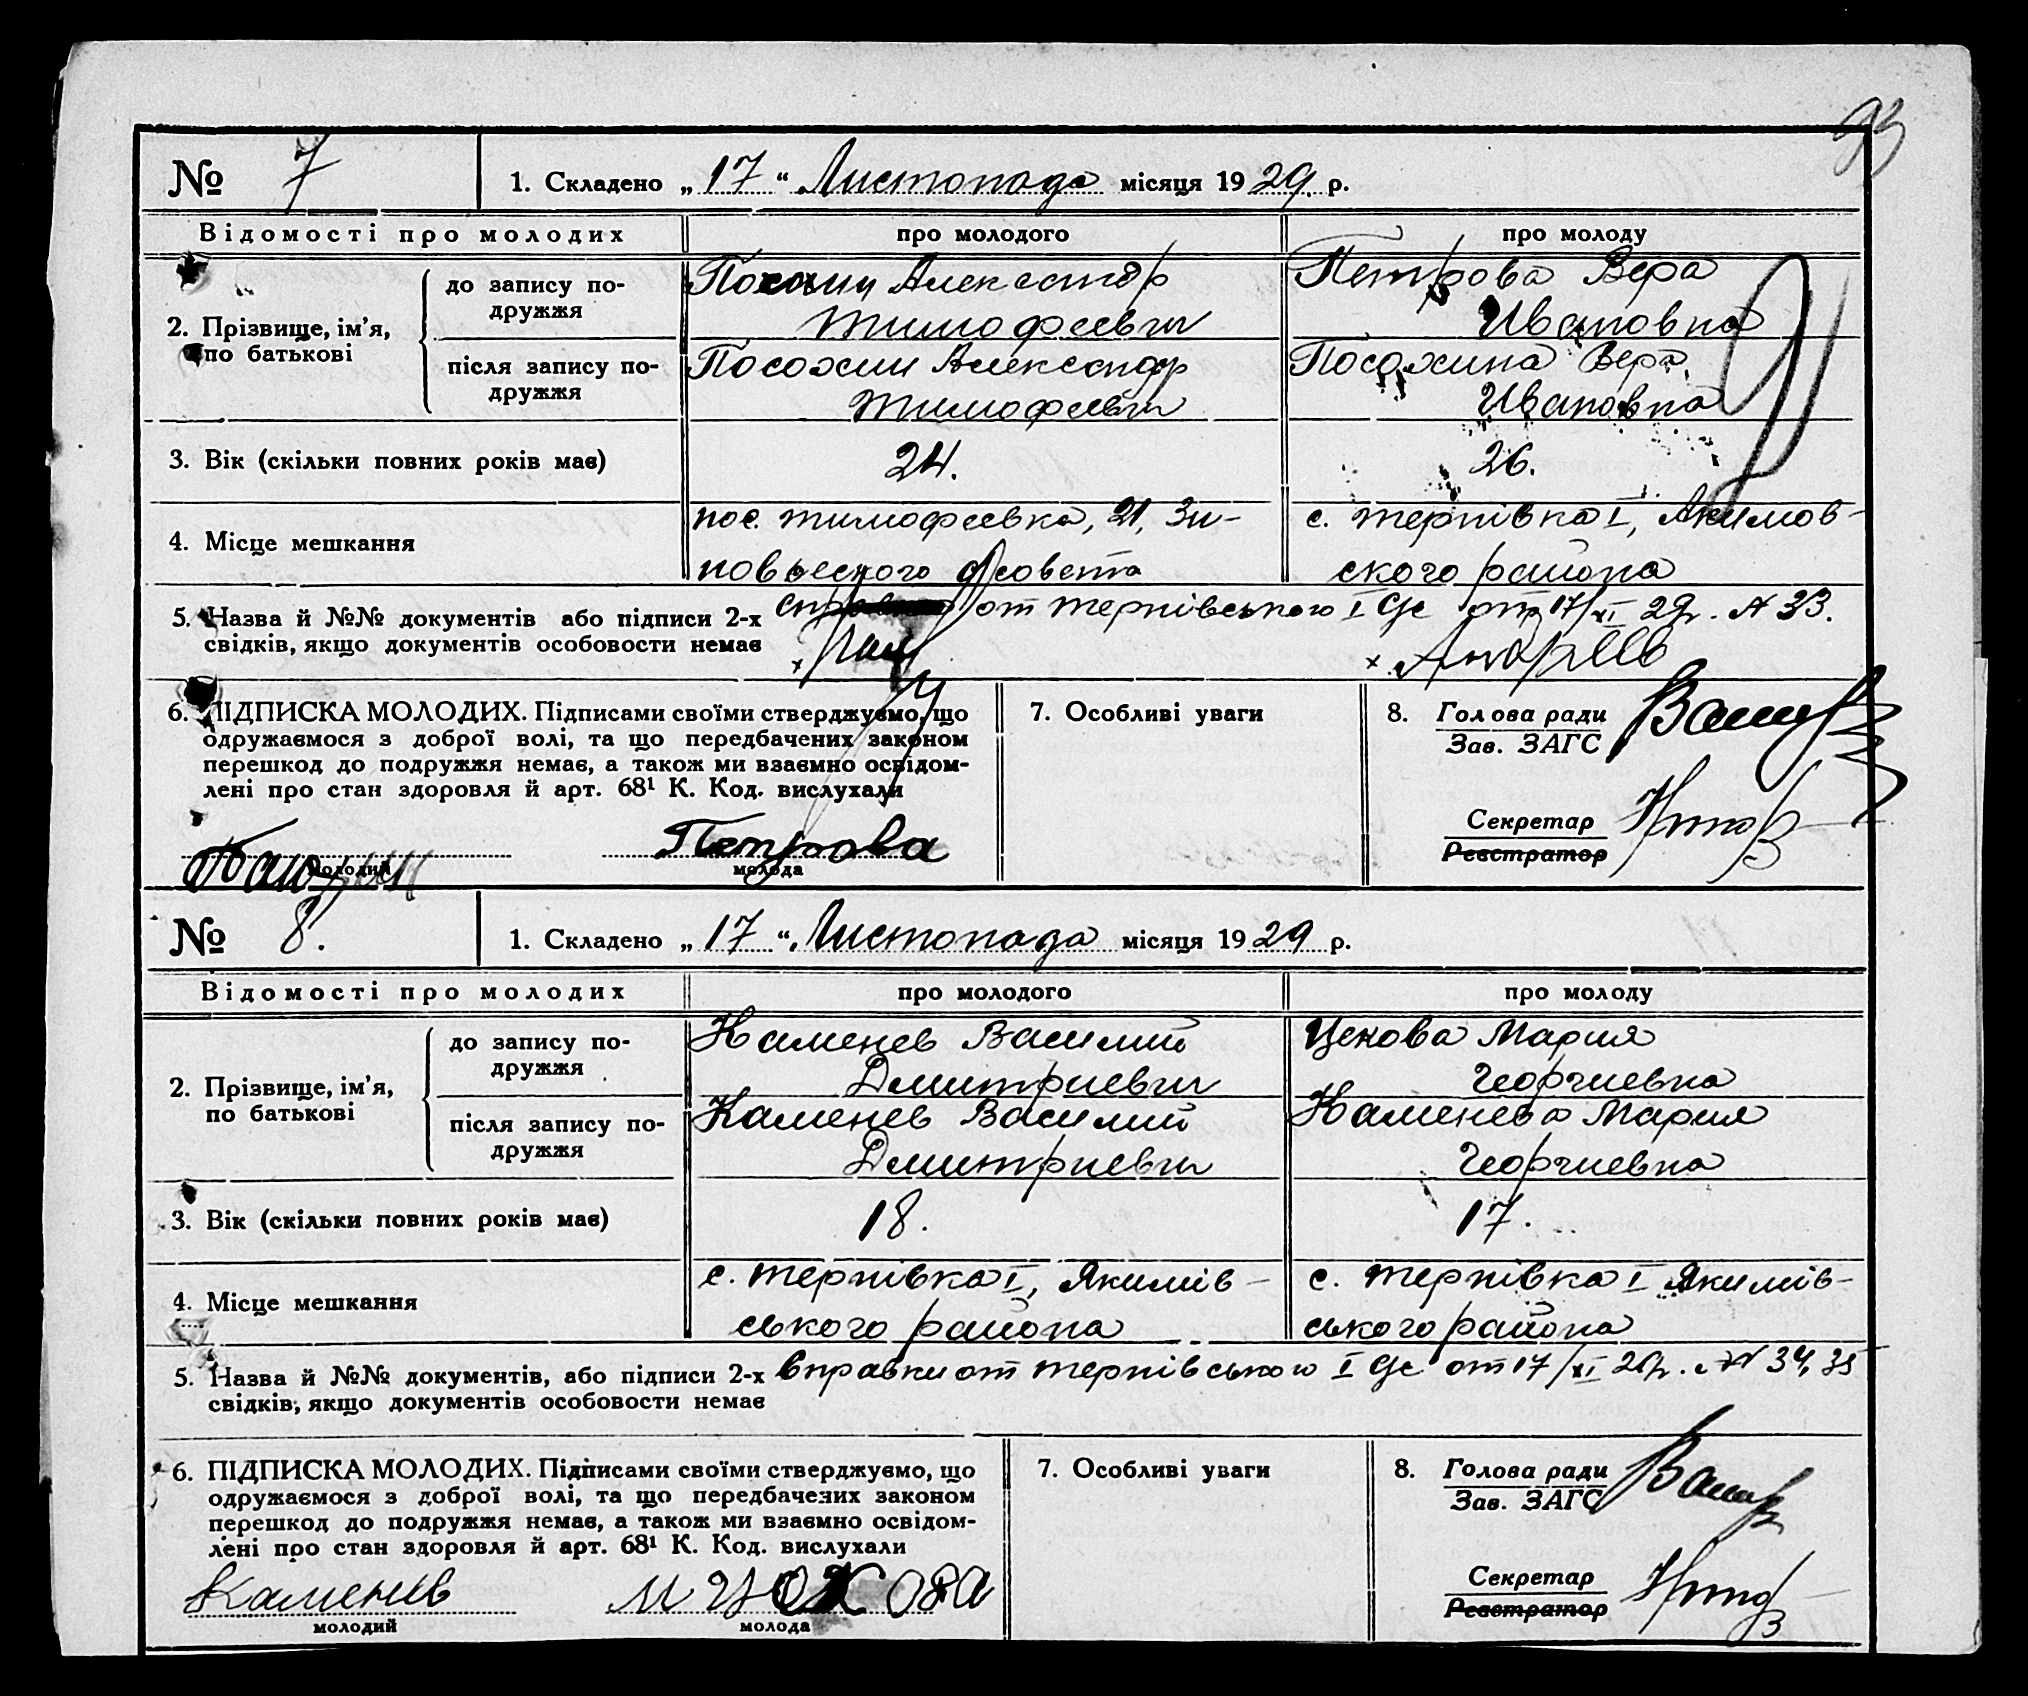 93
№ 7 1. Складено „ 17 “ Листопада місяця 19 29 р.
Відомості про молодих про молодого про молоду
2. Прізвище, ім’я, по батькові
до запису по-
дружжя
Александр
Тимофеевич
Петрова Вера
Ивановна
після запису по-
дружжя
Посохин Александр
Тимофеевич
Посохина Вера
Ивановна
3. Вік (скільки повних років має) 24. 26.
4. Місце мешкання
пос. Тимофеевка, 21, Зи-
новьеского с/совета
с. Терпівка I, Акимов-
ского района
5. Назва й №№ документів або підписи 2-х
свідків, якщо документів особовости немає
от Терпівського I с/с от 17/XI 29р. № 33.
Андреев
6. ПІДПИСКА МОЛОДИХ. Підписами своїми стверджуємо, що
одружаємося з доброї волі, та що передбачених законом
перешкод до подружжя немає, а також ми взаємно освідом-
лені про стан здоровля й арт. 68¹ К. Код. вислухали
молодий
Петрова
молода
7. Особливі уваги
8. Голова ради
Зав. ЗАГС
Секретар
Реєстратор
№ 8. 1. Складено „ 17 “ Листопада місяця 19 29 р.
Відомості про молодих про молодого про молоду
2. Прізвище, ім’я,
по батькові
до запису по-
дружжя
Каменев Василий
Дмитриевич
Цекова Мария
Георгиевна
після запису по-
дружжя
Каменев Василий
Дмитриевич
Каменева Мария
Георгиевна
3. Вік (скільки повних років має) 18. 17.
4. Місце мешкання
с. Терпівка I, Якимів-
ського района
с. Терпівка I Якимів-
ського района
5. Назва й №№ документів, або підписи 2-х
свідків, якщо документів особовости немає
Справки от Терпівського I с/с от 17/XI 29р. № 34, 35
6. ПІДПИСКА МОЛОДИХ. Підписами своїми стверджуємо, що
одружаємося з доброї волі, та що передбачених законом
перешкод до подружжя немає, а також ми взаємно освідом-
лені про стан здоровля й арт. 68¹ К. Код. вислухали
Каменев
молодий
молода
7. Особливі уваги
8. Голова ради
Зав. ЗАГС
Секретар
Реєстратор